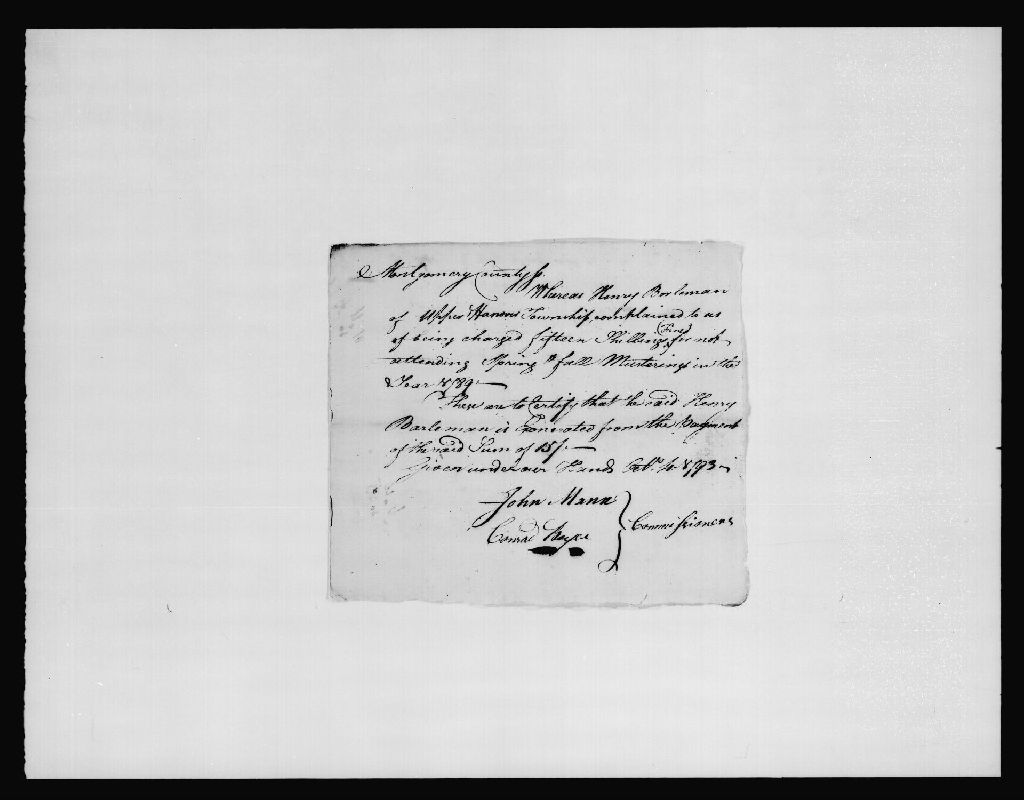 Montgomery County ss.
Whereas Henry Borleman
of Upper Hanover Township complained to us
of being charged fifteen Shillings Fined for not
attending Spring & fall Musterings in the
Year 1789.
These are to Certify that the said Henry
Barleman is Exonerated from the Payment
of the said Sum of 15/.
Given under our Hands Febr. 1793
John Mann
Conrad
Commissioners